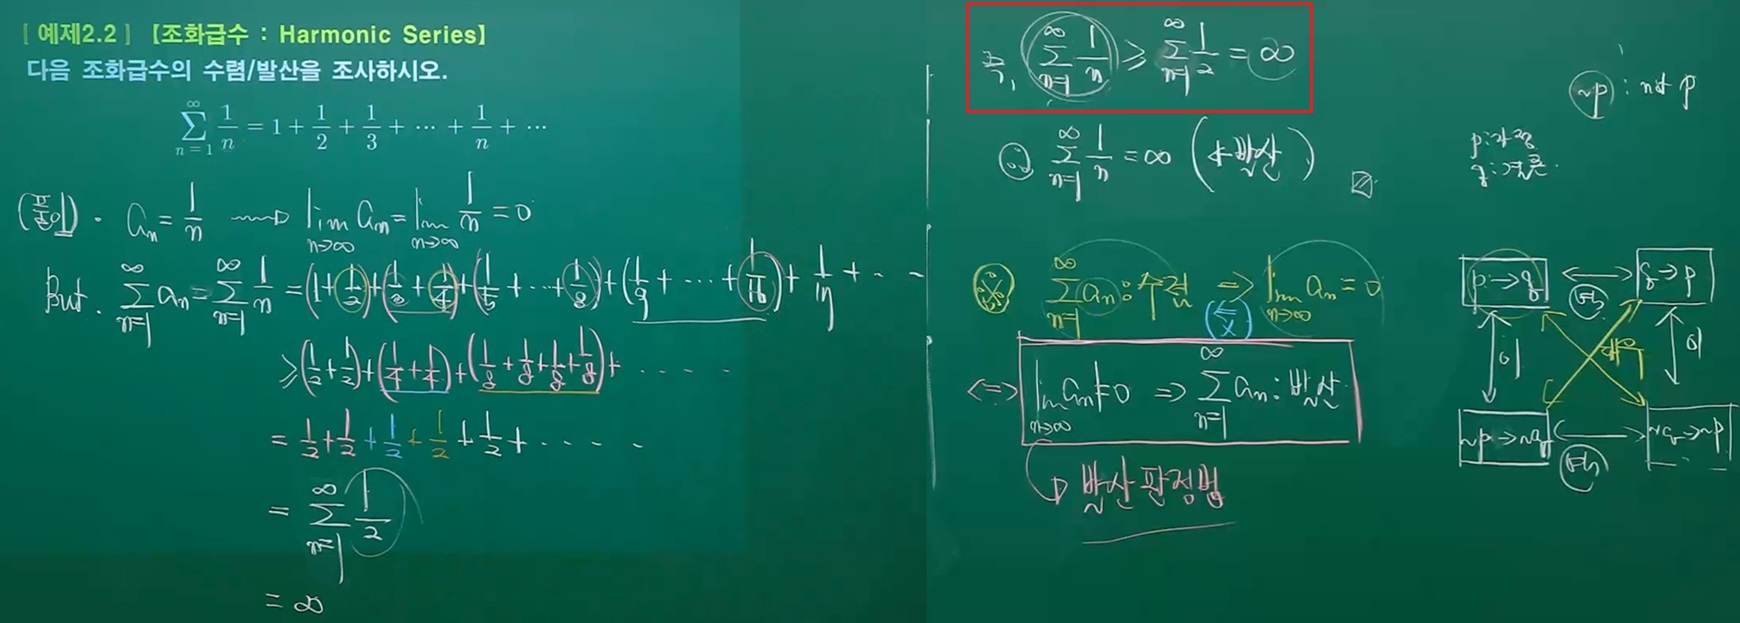 [ 예제2.2 ] 【조화급수 : Harmonic Series】
다음 조화급수의 수렴/발산을 조사하시오.
∞∑n=1 1/n = 1 + 1/2 + 1/3 + ⋯ + 1/n + ⋯
(풀이) · an = 1/n → lim n→∞ an = lim n→∞ 1/n = 0
But. ∞∑n=1 an = ∞∑n=1 1/n = (1 + 1/2) + (1/3 + 1/4) + (1/5 + ⋯ + 1/8) + (1/9 + ⋯ + 1/16) + 1/17 + ⋯
≥ (1/2 + 1/2) + (1/4 + 1/4) + (1/8 + 1/8 + 1/8 + 1/8) + ⋯
= 1/2 + 1/2 + 1/2 + 1/2 + 1/2 + ⋯
= ∞∑n=1 1/2
= ∞
즉, ∞∑n=1 1/n ≥ ∞∑n=1 1/2 = ∞
∴ ∞∑n=1 1/n = ∞ (발산)
※ ∞∑n=1 an : 수렴 ⇒ lim n→∞ an = 0
(⇐ x)
⇔ lim n→∞ an ≠ 0 ⇒ ∞∑n=1 an : 발산
발산판정법
~p : not p
p : 가정
q : 결론
p → q ↔ q → p
역
이 대우 이
~p → ~q ↔ ~q → ~p
역